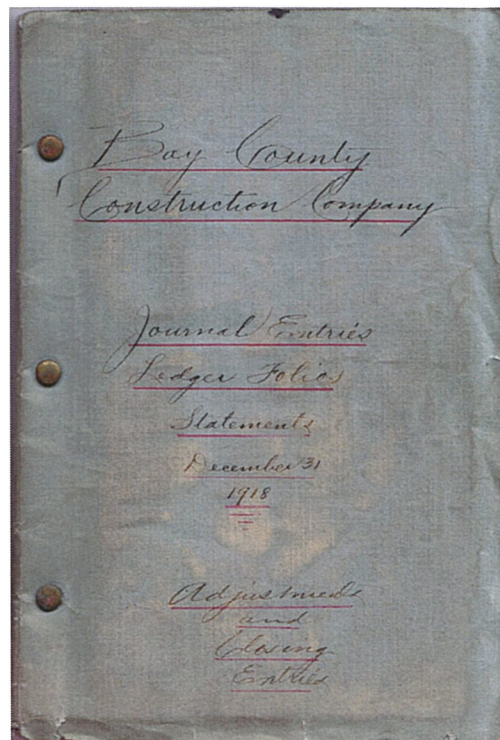 Bay County
Construction Company
Journal Entries
Ledger Folios
Statements
December 31
1918
Adjustments
and
Closing
Entries